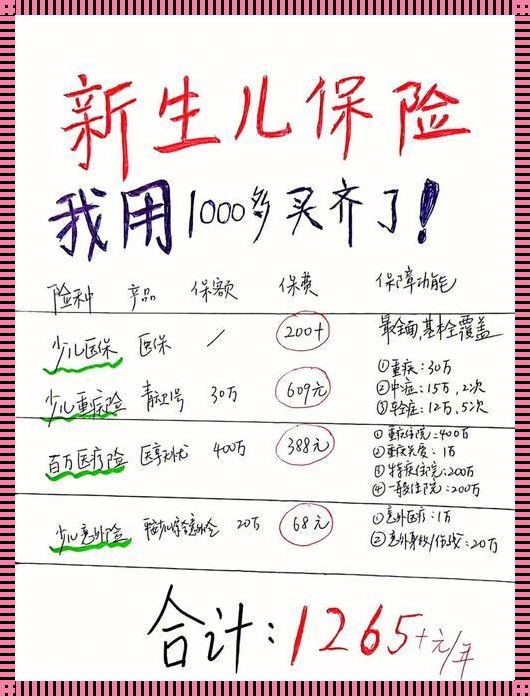 新生儿保险
我用1000多买齐了!
险种 产品 保额 保费 保障功能
少儿医保 医保 / 200+ 最全面,基本全覆盖
少儿重疾险 30万 609元 ①重疾:30万
②中症:15万,2次
③轻症:12万,5次
百万医疗险 400万 388元 ①重疾住院:400万
②重疾关爱:1万
③特疾住院:200万
④一般住院:200万
少儿意外险 20万 68元 ①意外医疗:1万
②意外身故/伤残:20万
合计:1265+元/年